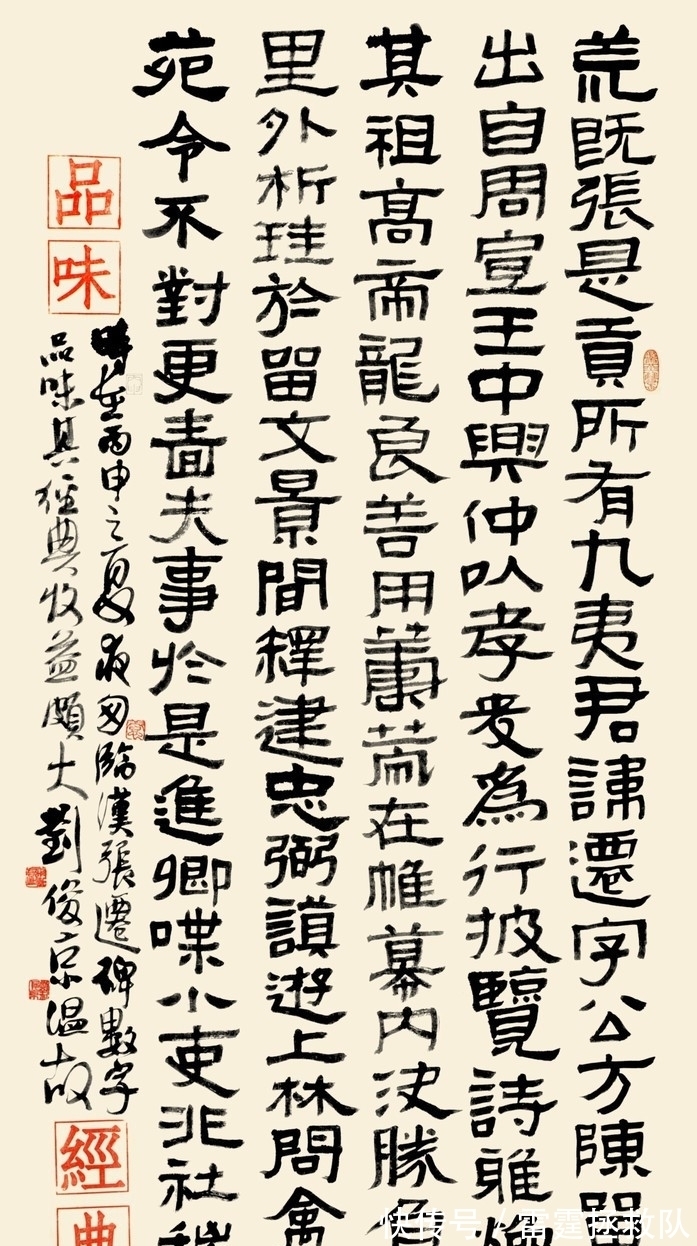 荒既張是貢所有九夷君諱遷字公方陳留
出自周宣王中興仲以孝友為行披覽詩雅煥
其祖高帝龍良善用蕭在帷幕内決勝負
里外析珪於留文景間釋建忠弼謨遊上林問禽
苑令不對更嗇夫事於是進卿喋小吏非社稷
時在丙申之夏夜臨漢張遷碑數字
品味其經典收益頗大劉俊京溫故
品味
經典
快传号 / 雷霆拯救队